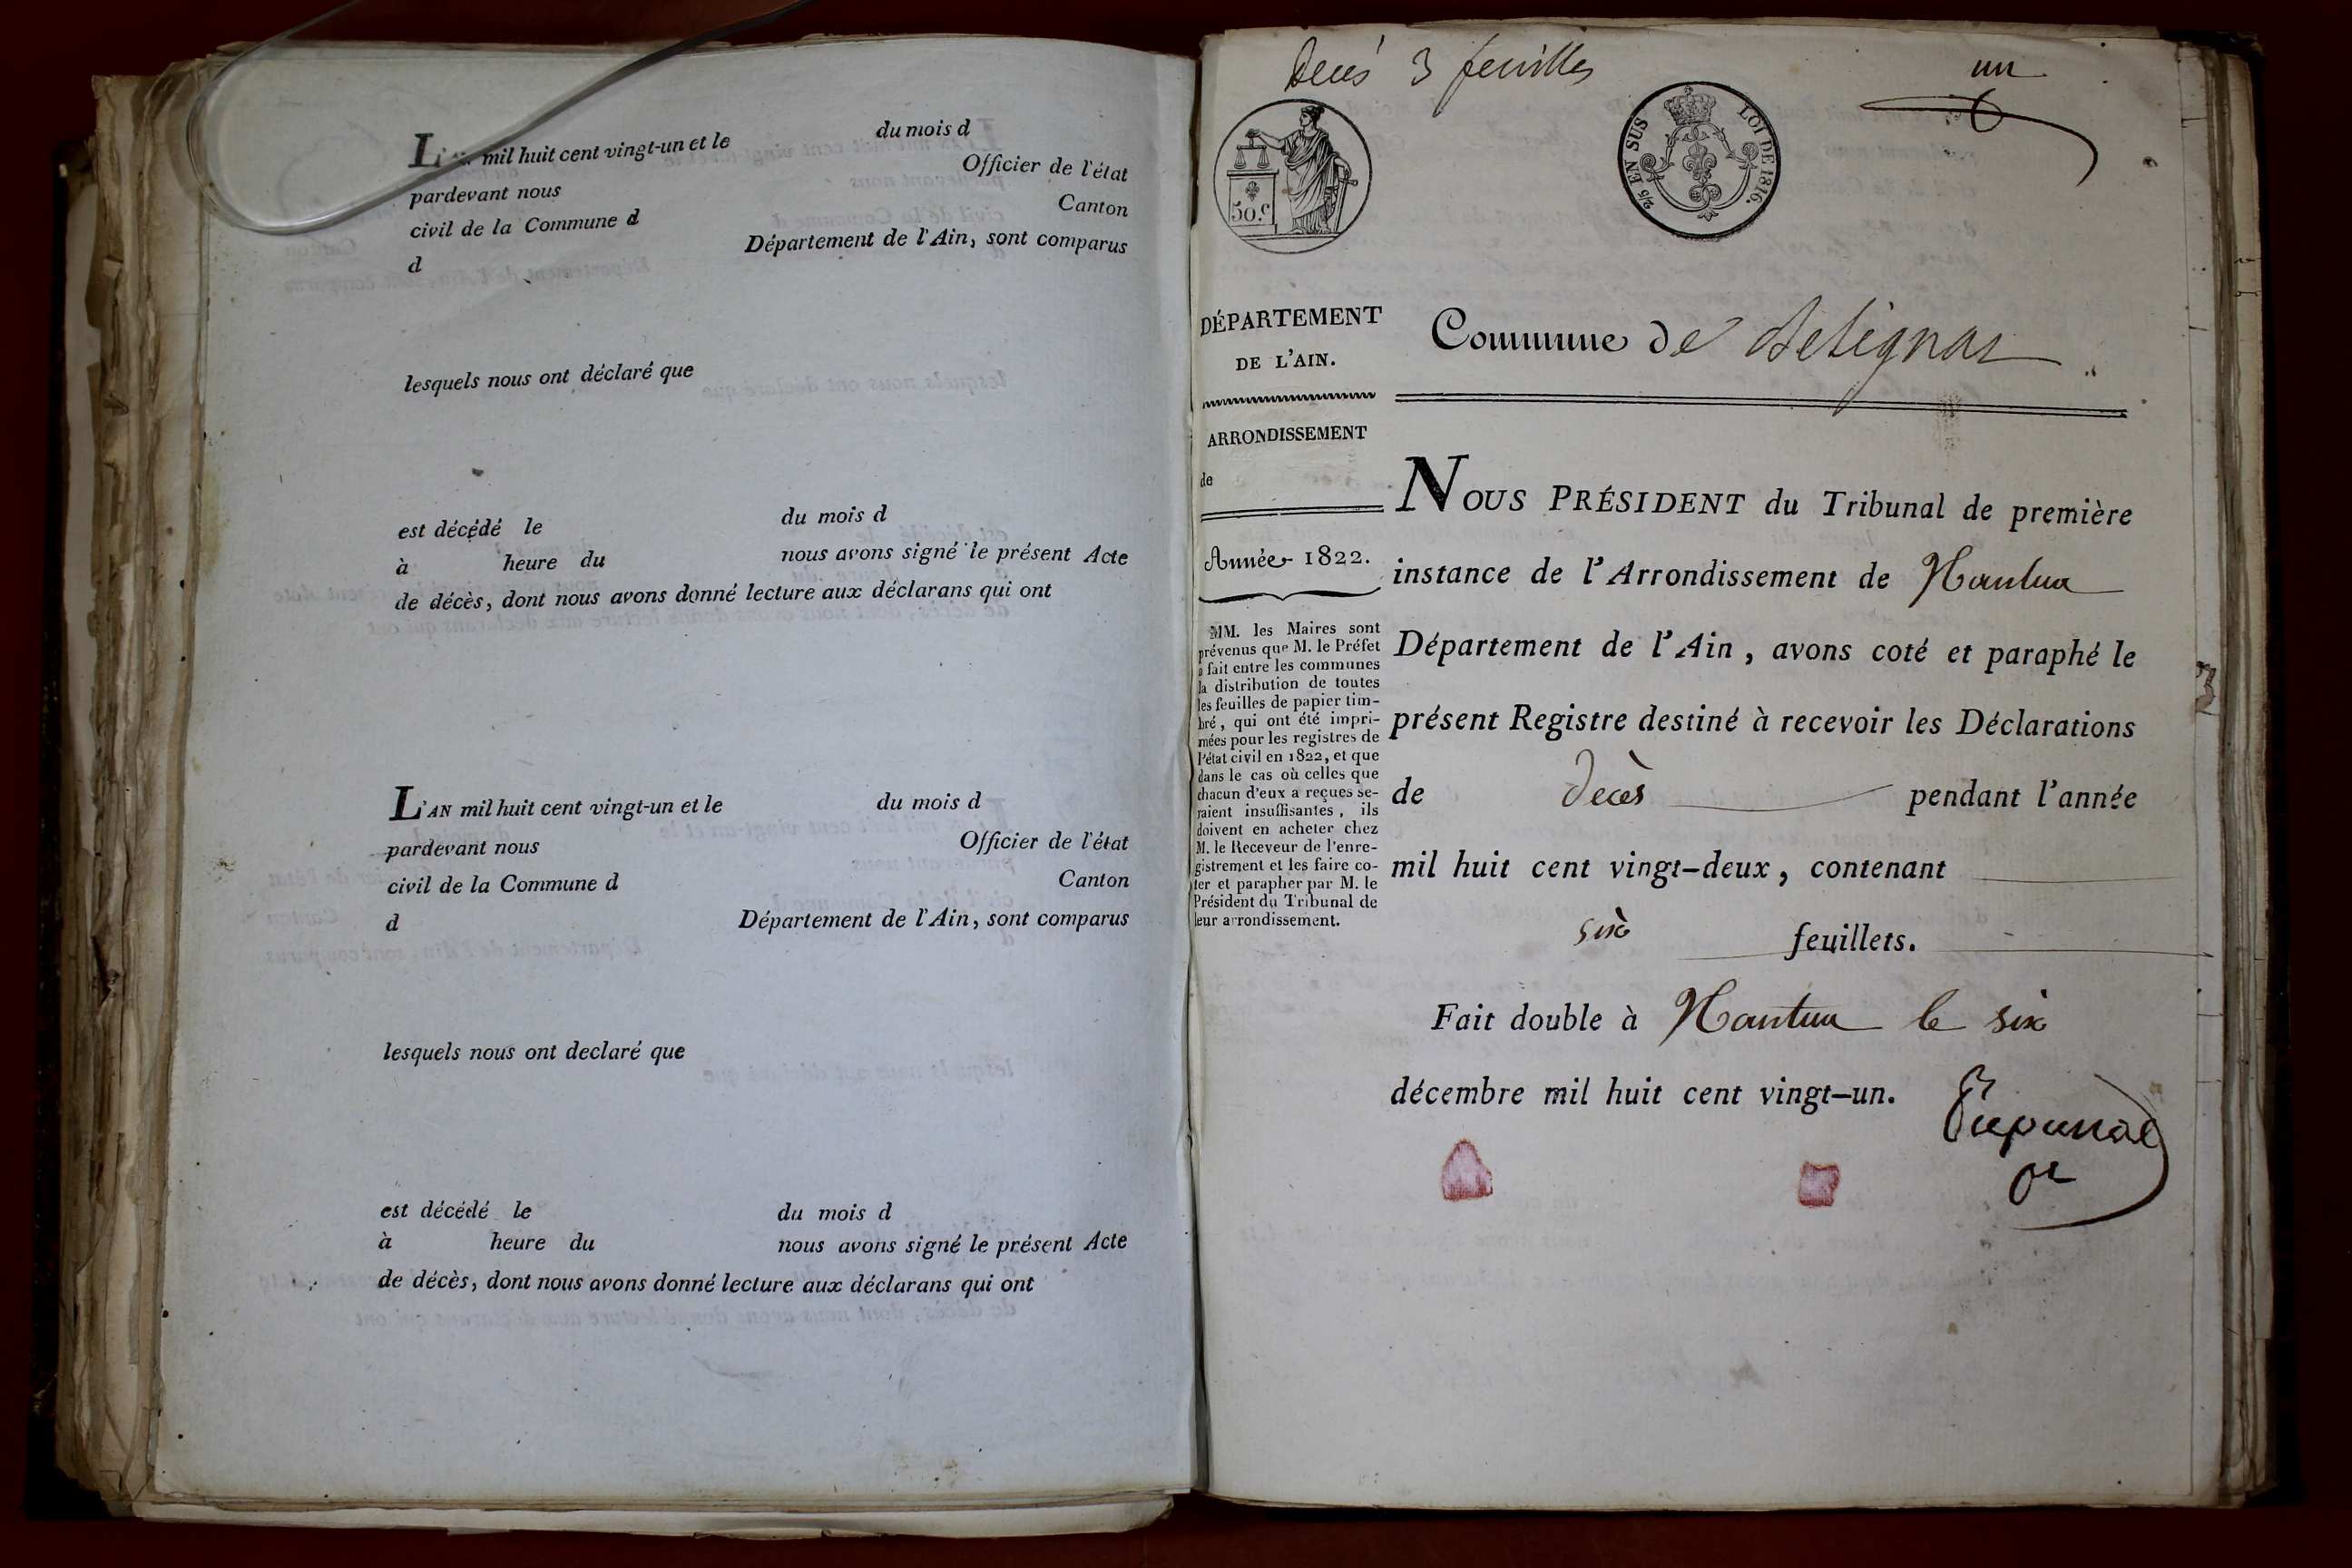 L'AN mil huit cent vingt-un et le du mois d
pardevant nous Officier de l'état
civil de la Commune d Canton
d Département de l'Ain, sont comparus
lesquels nous ont déclaré que
est décédé le du mois d
à heure du nous avons signé le présent Acte
de décès, dont nous avons donné lecture aux déclarans qui ont
L'AN mil huit cent vingt-un et le du mois d
pardevant nous Officier de l'état
civil de la Commune d Canton
d Département de l'Ain, sont comparus
lesquels nous ont declaré que
est décédé le du mois d
à heure du nous avons signé le présent Acte
de décès, dont nous avons donné lecture aux déclarans qui ont
Decés 3 feuilles
un
50.c
2/5 EN SUS LOI DE 1816.
DÉPARTEMENT
DE L'AIN.
ARRONDISSEMENT
de
Année 1822.
MM. les Maires sont
prévenus que M. le Préfet
a fait entre les communes
la distribution de toutes
les feuilles de papier tim-
bré, qui ont été impri-
mées pour les registres de
l'état civil en 1822, et que
dans le cas où celles que
chacun d'eux a reçues se-
raient insuffisantes, ils
doivent en acheter chez
M. le Receveur de l'enre-
gistrement et les faire co-
ter et parapher par M. le
Président du Tribunal de
leur arrondissement.
Commune de Setignat
NOUS PRÉSIDENT du Tribunal de première
instance de l'Arrondissement de Nantua
Département de l'Ain, avons coté et paraphé le
présent Registre destiné à recevoir les Déclarations
de décès pendant l'année
mil huit cent vingt-deux, contenant
six feuillets.
Fait double à Nantua le six
décembre mil huit cent vingt-un.